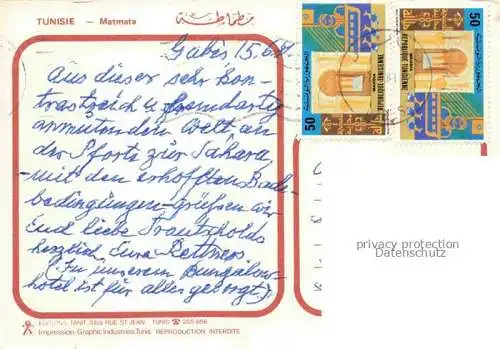 TUNISIE – Matmata
مطماطة
Gabès 15.6.
Aus dieser sehr kon-
trastreich u. fremdartig
anmutenden Welt an
der Pforte zur Sahara,
-mit den erhofften Bade-
bedingungen- grüßen wir
Euch liebe
herzlich, Eure
(In unserem Bungalow-
hotel ist für alles gesorgt!)
50
REPUBLIQUE TUNISIENNE
50
REPUBLIQUE TUNISIENNE
privacy protection
Datenschutz
EDITIONS TANIT RUE ST JEAN TUNIS ☎ 265 856
Impression-Graphic Industries-Tunis REPRODUCTION INTERDITE